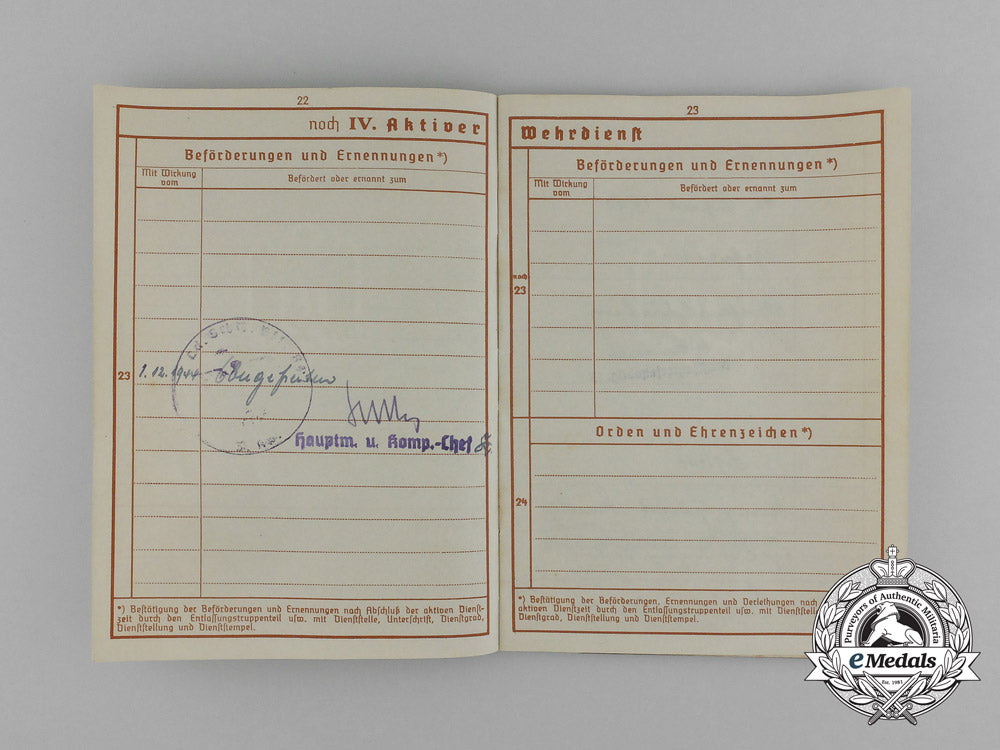 22
noch IV. Aktiver
Beförderungen und Ernennungen*)
Mit Wirkung
vom
Befördert oder ernannt zum
23
1.12.1944
Hauptm. u. Komp.-Chef
*) Bestätigung der Beförderungen und Ernennungen nach Abschluß der aktiven Dienst-
zeit durch den Entlassungstruppenteil usw. mit Dienststelle, Unterschrift, Dienstgrad,
Dienststellung und Dienststempel.
23
Wehrdienst
Beförderungen und Ernennungen*)
Mit Wirkung
vom
Befördert oder ernannt zum
noch
23
Orden und Ehrenzeichen*)
24
*) Bestätigung der Beförderungen, Ernennungen und Verleihungen nach
aktiven Dienstzeit durch den Entlassungstruppenteil usw. mit Dienststelle
Dienstgrad, Dienststellung und Dienststempel.
Purveyors of Authentic Militaria
eMedals
Est. 1981